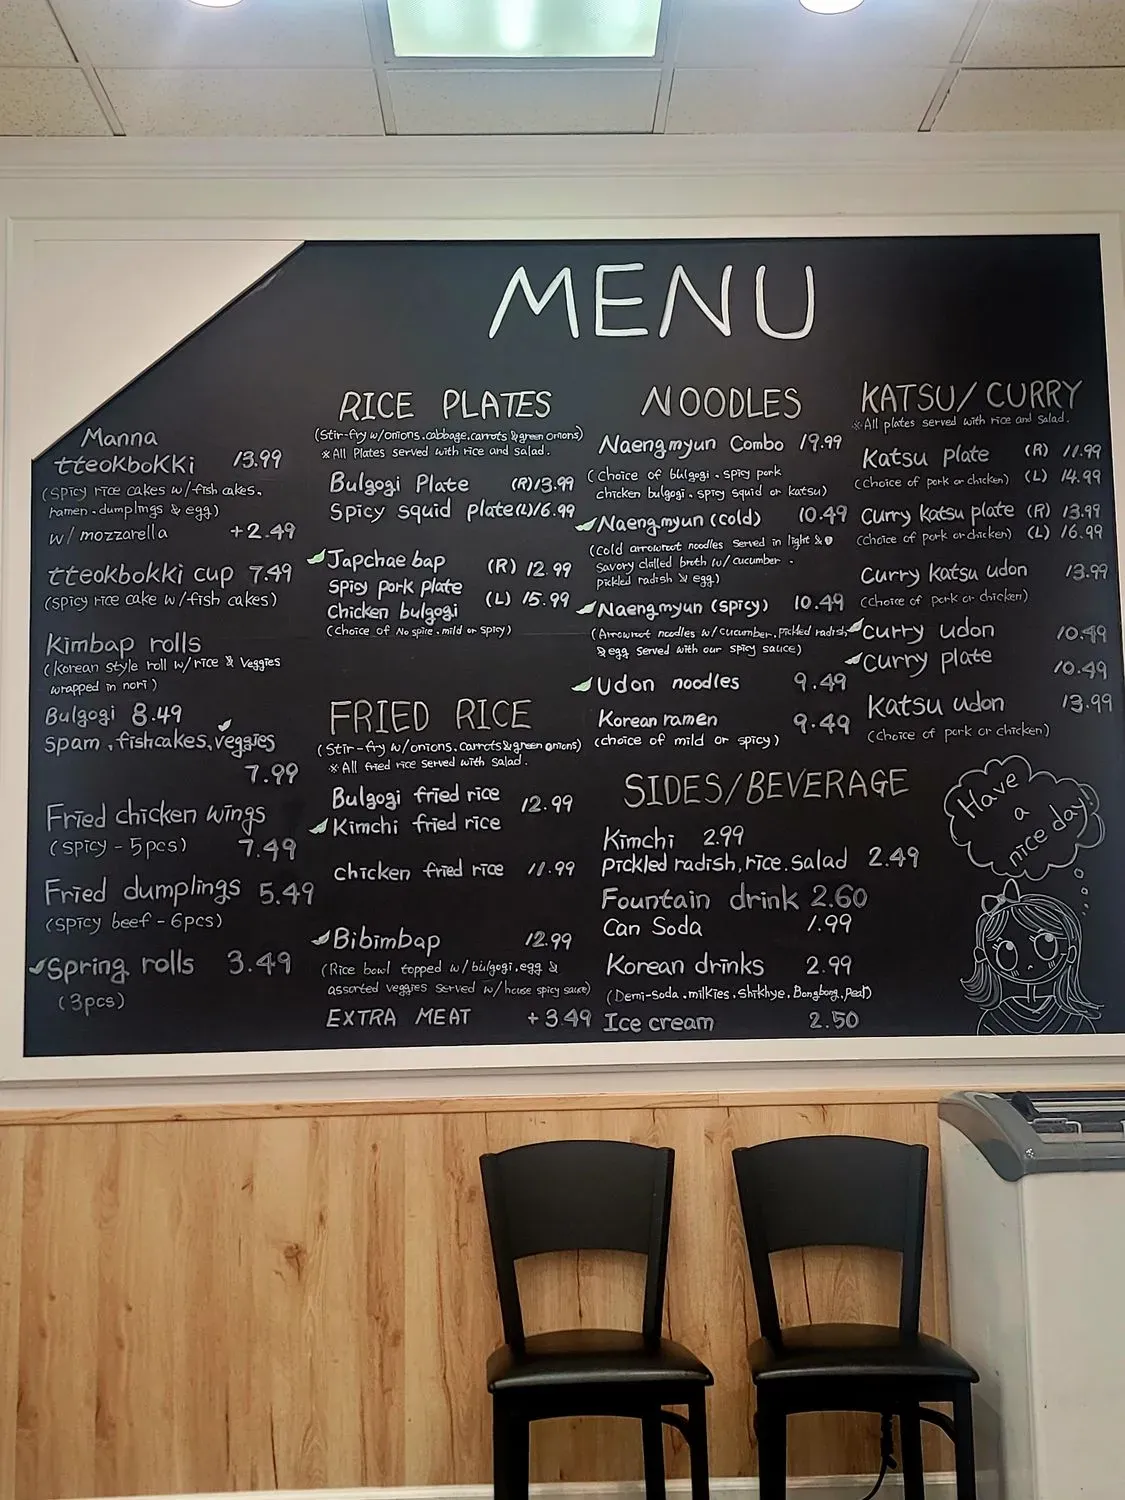 MENU
Manna
tteokbokki 13.99
(spicy rice cakes w/fish cakes.
ramen.dumplings & egg)
w/ mozzarella +2.49
tteokbokki cup 7.49
(spicy rice cake w/fish cakes)
Kimbap rolls
(Korean style roll w/rice & veggies
wrapped in nori)
Bulgogi 8.49
spam.fishcakes.veggies
7.99
Fried chicken wings
(spicy - 5pcs) 7.49
Fried dumplings 5.49
(spicy beef - 6pcs)
Spring rolls 3.49
(3pcs)
RICE PLATES
(Stir-fry w/onions.cabbage.carrots & green onions)
※All Plates served with rice and salad.
Bulgogi Plate (R)13.99
Spicy squid plate(L)16.99
Japchae bap (R) 12.99
Spicy pork plate
Chicken bulgogi (L) 15.99
(choice of No spice.mild or spicy)
FRIED RICE
(Stir-fry w/onions.carrots & green onions)
※All fried rice served with salad.
Bulgogi fried rice 12.99
Kimchi fried rice
chicken fried rice 11.99
Bibimbap 12.99
(Rice bowl topped w/bulgogi.egg &
assorted veggies served w/house spicy sauce)
EXTRA MEAT +3.49
NOODLES
Naengmyun Combo 19.99
(Choice of bulgogi.spicy pork
chicken bulgogi.spicy squid or katsu)
Naengmyun (cold) 10.49
(Cold arrowroot noodles served in light &
savory chilled broth w/cucumber.
pickled radish & egg)
Naengmyun (spicy) 10.49
(Arrowroot noodles w/cucumber.pickled radish
& egg served with our spicy sauce)
Udon noodles 9.49
Korean ramen 9.49
(choice of mild or spicy)
SIDES/BEVERAGE
Kimchi 2.99
pickled radish,rice.salad 2.49
Fountain drink 2.60
Can Soda 1.99
Korean drinks 2.99
(Demi-Soda.milkies.Shikhye.Bongbong.Pear)
Ice cream 2.50
KATSU/CURRY
※All plates served with rice and salad.
Katsu plate (R) 11.99
(Choice of pork or chicken) (L) 14.99
Curry katsu plate (R) 13.99
(Choice of pork or chicken) (L) 16.99
Curry katsu udon 13.99
(Choice of pork or chicken)
Curry udon 10.49
Curry plate 10.49
Katsu udon 13.99
(Choice of pork or chicken)
Have
a
nice day!